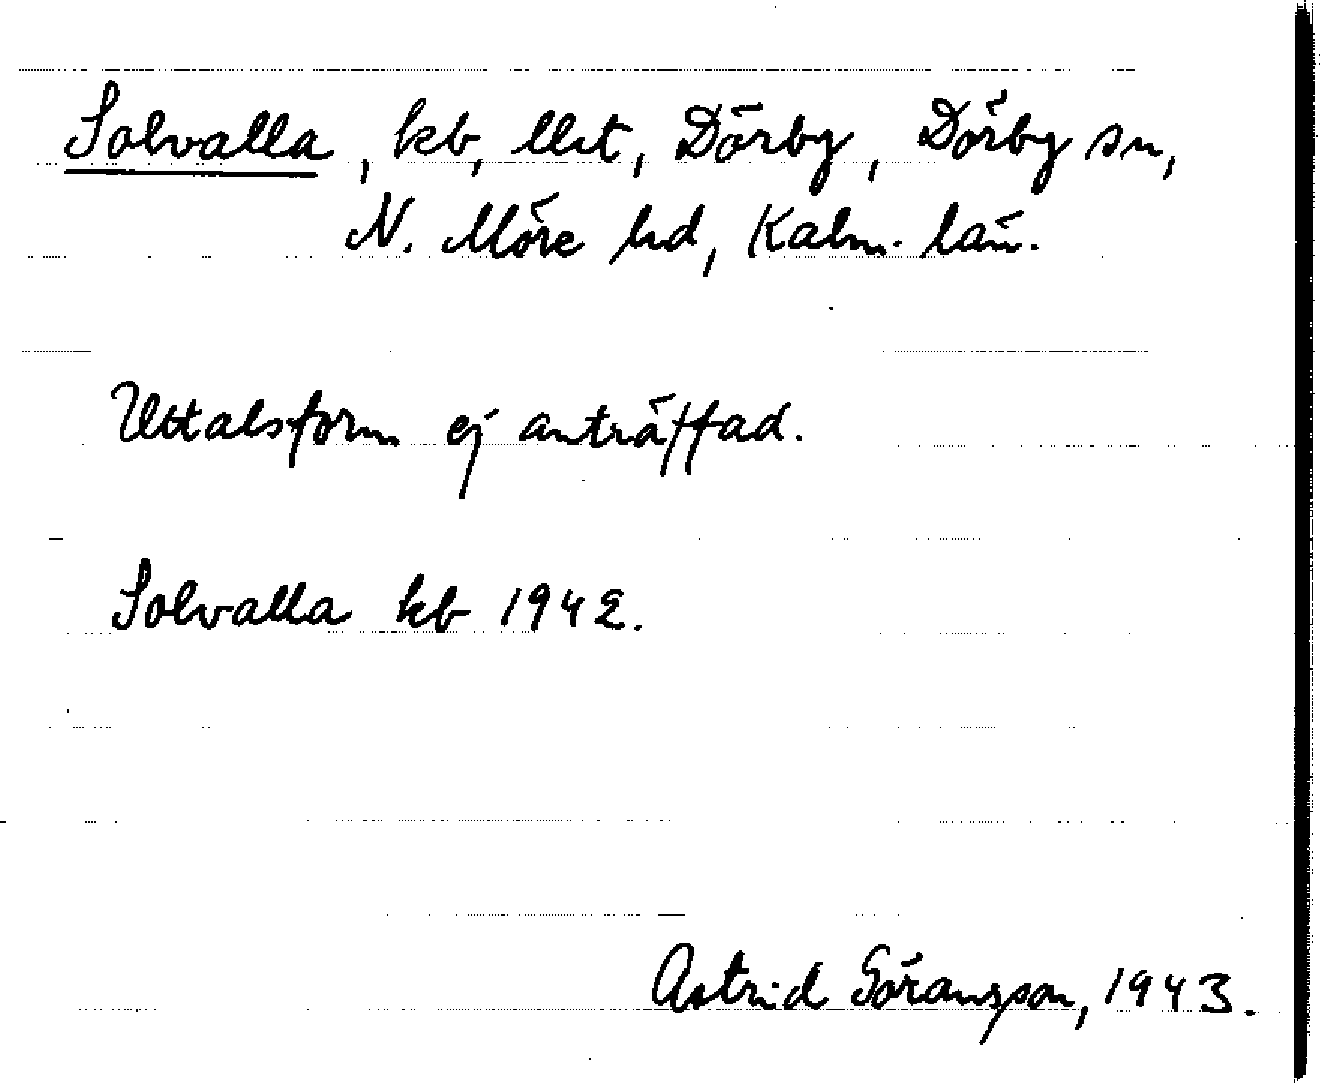 Solvalla, kb, llit, Dörby, Dörby sn,
N. Möre hd, Kalm. län.
Uttalsform ej anträffad.
Solvalla kb 1942.
Astrid Göransson, 1943.